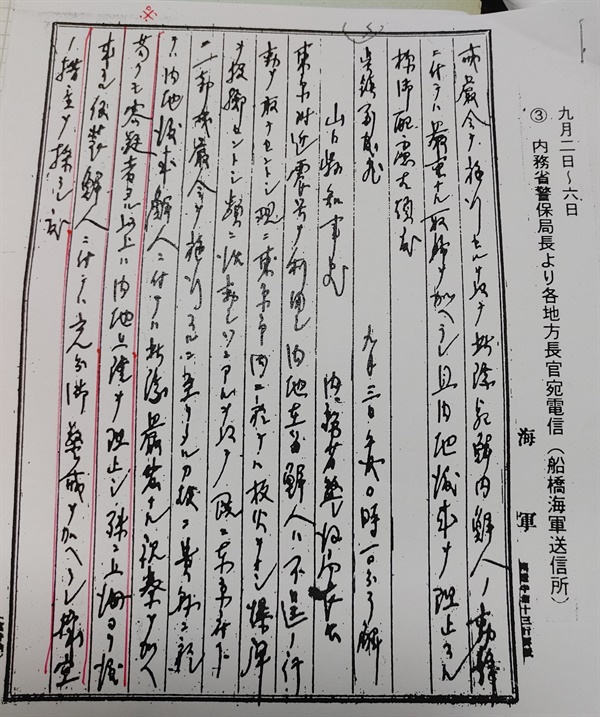 九月二日～六日
③ 内務省警保局長より各地方長官宛電信(船橋海軍送信所)
海軍
戒厳令ヲ施行セルヲ以テ
鮮内鮮人ノ動静
ニ付テハ厳重ナル取締ヲ加ヘラレ且内地渡来ヲ阻止スル
様御配慮相煩度
九月三日午前〇時一〇分了解
山口県知事宛
内務省警保局長出
東京附近震災ヲ利用シ内地在留鮮人ハ不逞ノ行
動ヲ敢テセントシ現ニ東京市内ニ於テハ放火ヲナシ爆弾
ヲ投擲セントシ頻ニ活動シツツアルヲ以テ既ニ東京府下
ニ一部戒厳令ヲ施行スルニ至リタルカ故ニ貴県ニ於
テハ内地渡来鮮人ニ付テハ此際厳密ナル視察ヲ加ヘ
苟クモ容疑者タル以上ハ内地上陸ヲ阻止シ殊ニ上海ヨリ渡
来スル仮装鮮人ニ付テハ充分御警戒ヲ加ヘラレ機宜
ノ措置ヲ採ラレ度